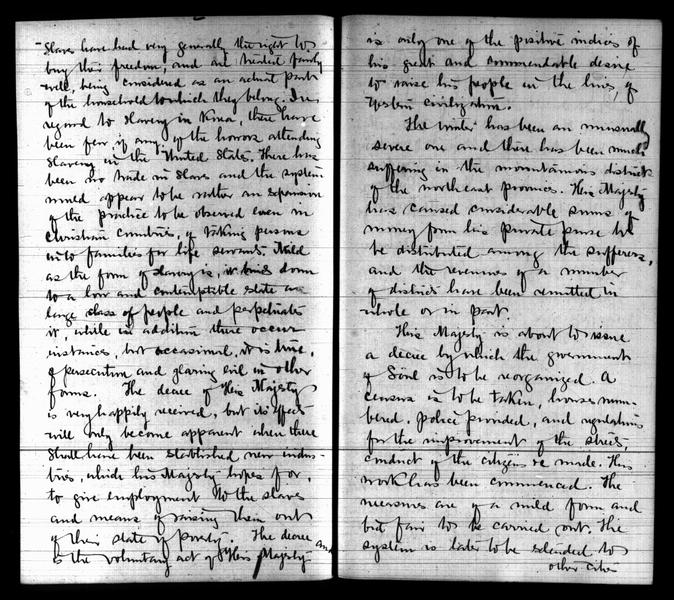 slaves have had very generally the right to
buy their freedom, and are treated fairly
well, being considered as an actual part
of the household to which they belong. In
regard to slavery in Korea, there have
been few, if any, of the horrors attending
slavery in the United States. There has
been no trade in slaves and the system
would appear to be rather an expansion
of the practice to be observed even in
Christian countries, of taking persons
into families for life servants. Mild
as the form of slavery is, it binds down
to a low and contemptible state a
large class of people and perpetuates
it, while in addition there occur
instances, but occasional, it is true,
of persecution and glaring evil in other
forms. The decree of His Majesty
is very happily received, but its effects
will only become apparent when there
shall have been established new indus-
tries, which his Majesty hopes for,
to give employment to the slaves
and means of raising them out
of their state of poverty. The decree
is the voluntary act of His Majesty and
is only one of the positive indices of
his great and commendable desire
to raise his people in the lines of
Western civilization.
The winter has been an unusually
severe one and there has been much
suffering in the mountainous districts
of the northeast provinces. His Majesty
has caused considerable sums of
money from his private purse to
be distributed among the sufferers,
and the revenues of a number
of districts have been remitted in
whole or in part.
His Majesty is about to issue
a decree by which the government
of Söul is to be reorganized. A
census is to be taken, houses num-
bered, police provided, and regulations
for the improvement of the streets
conduct of the citizens be made. This
work has been commenced. The
measures are of a mild form and
but fair to be carried out. The
system is later to be extended to
other cities